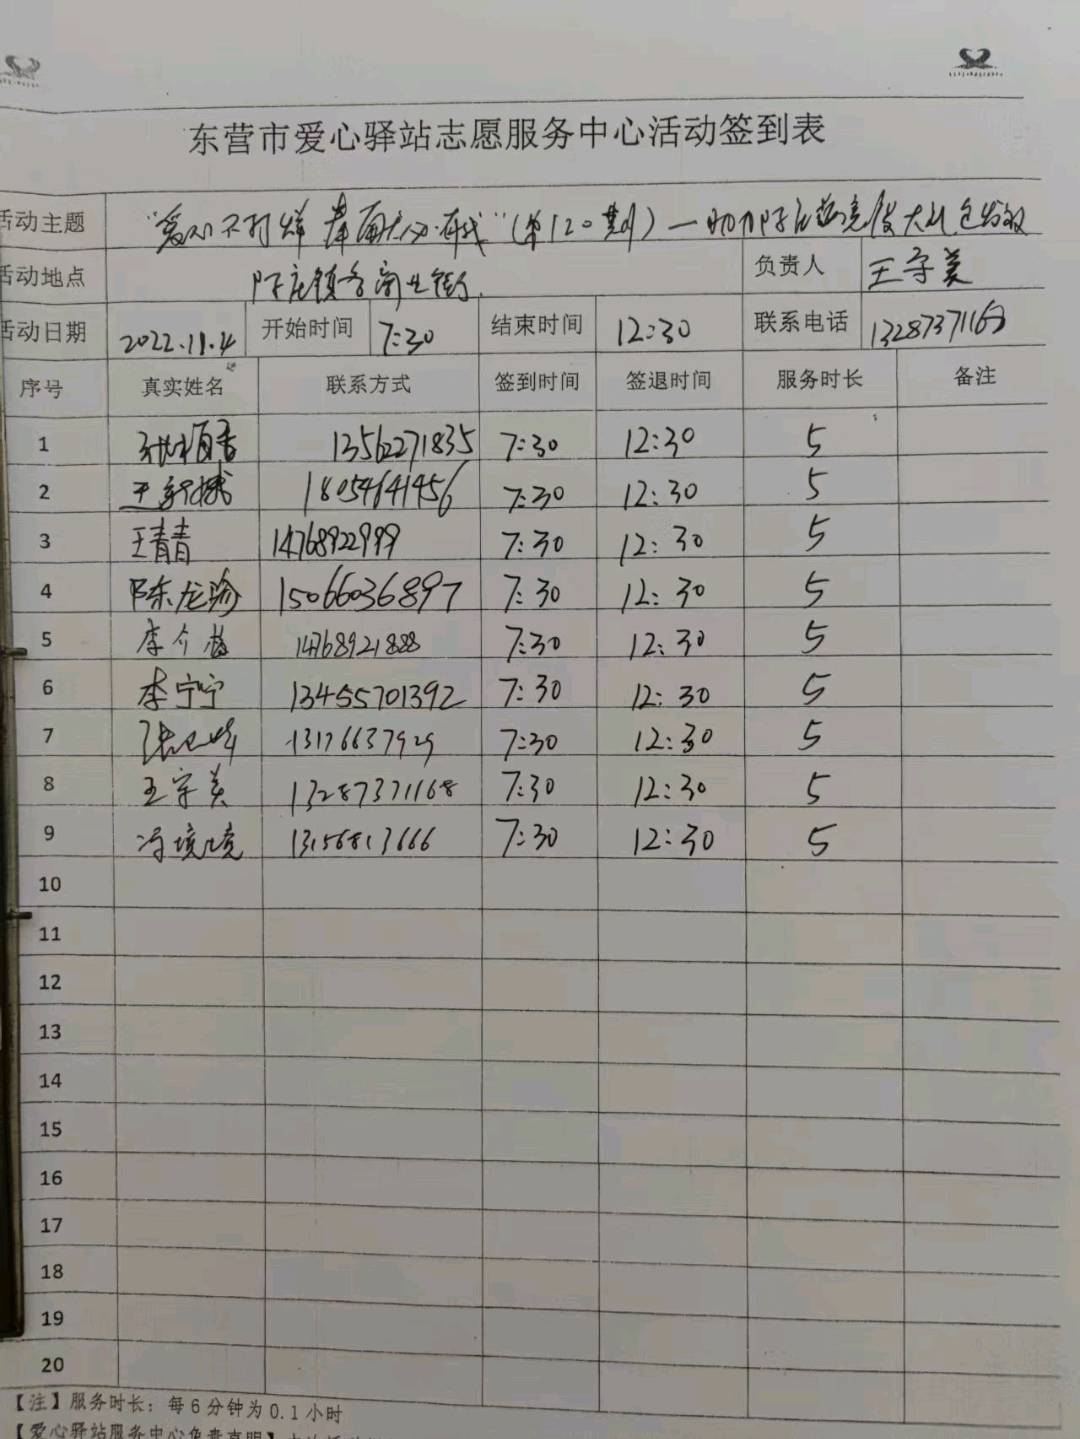 东营市爱心驿站志愿服务中心活动签到表
活动主题 "爱心不打烊 有我"(第120期)一助力
活动地点 陈庄镇 商业街 负责人 王守美
活动日期 2022.11.4 开始时间 7:30 结束时间 12:30 联系电话 13287371168
序号 真实姓名 联系方式 签到时间 签退时间 服务时长 备注
1 13562271835 7:30 12:30 5
2 18054641456 7:30 12:30 5
3 王青青 14768922999 7:30 12:30 5
4 陈龙 15066036897 7:30 12:30 5
5 李介 14768921888 7:30 12:30 5
6 李宁宁 13455701392 7:30 12:30 5
7 张 13176637929 7:30 12:30 5
8 王守美 13287371168 7:30 12:30 5
9 冯境境 13156813666 7:30 12:30 5
10
11
12
13
14
15
16
17
18
19
20
【注】服务时长：每6分钟为0.1小时
【爱心驿站服务中心免责声明】